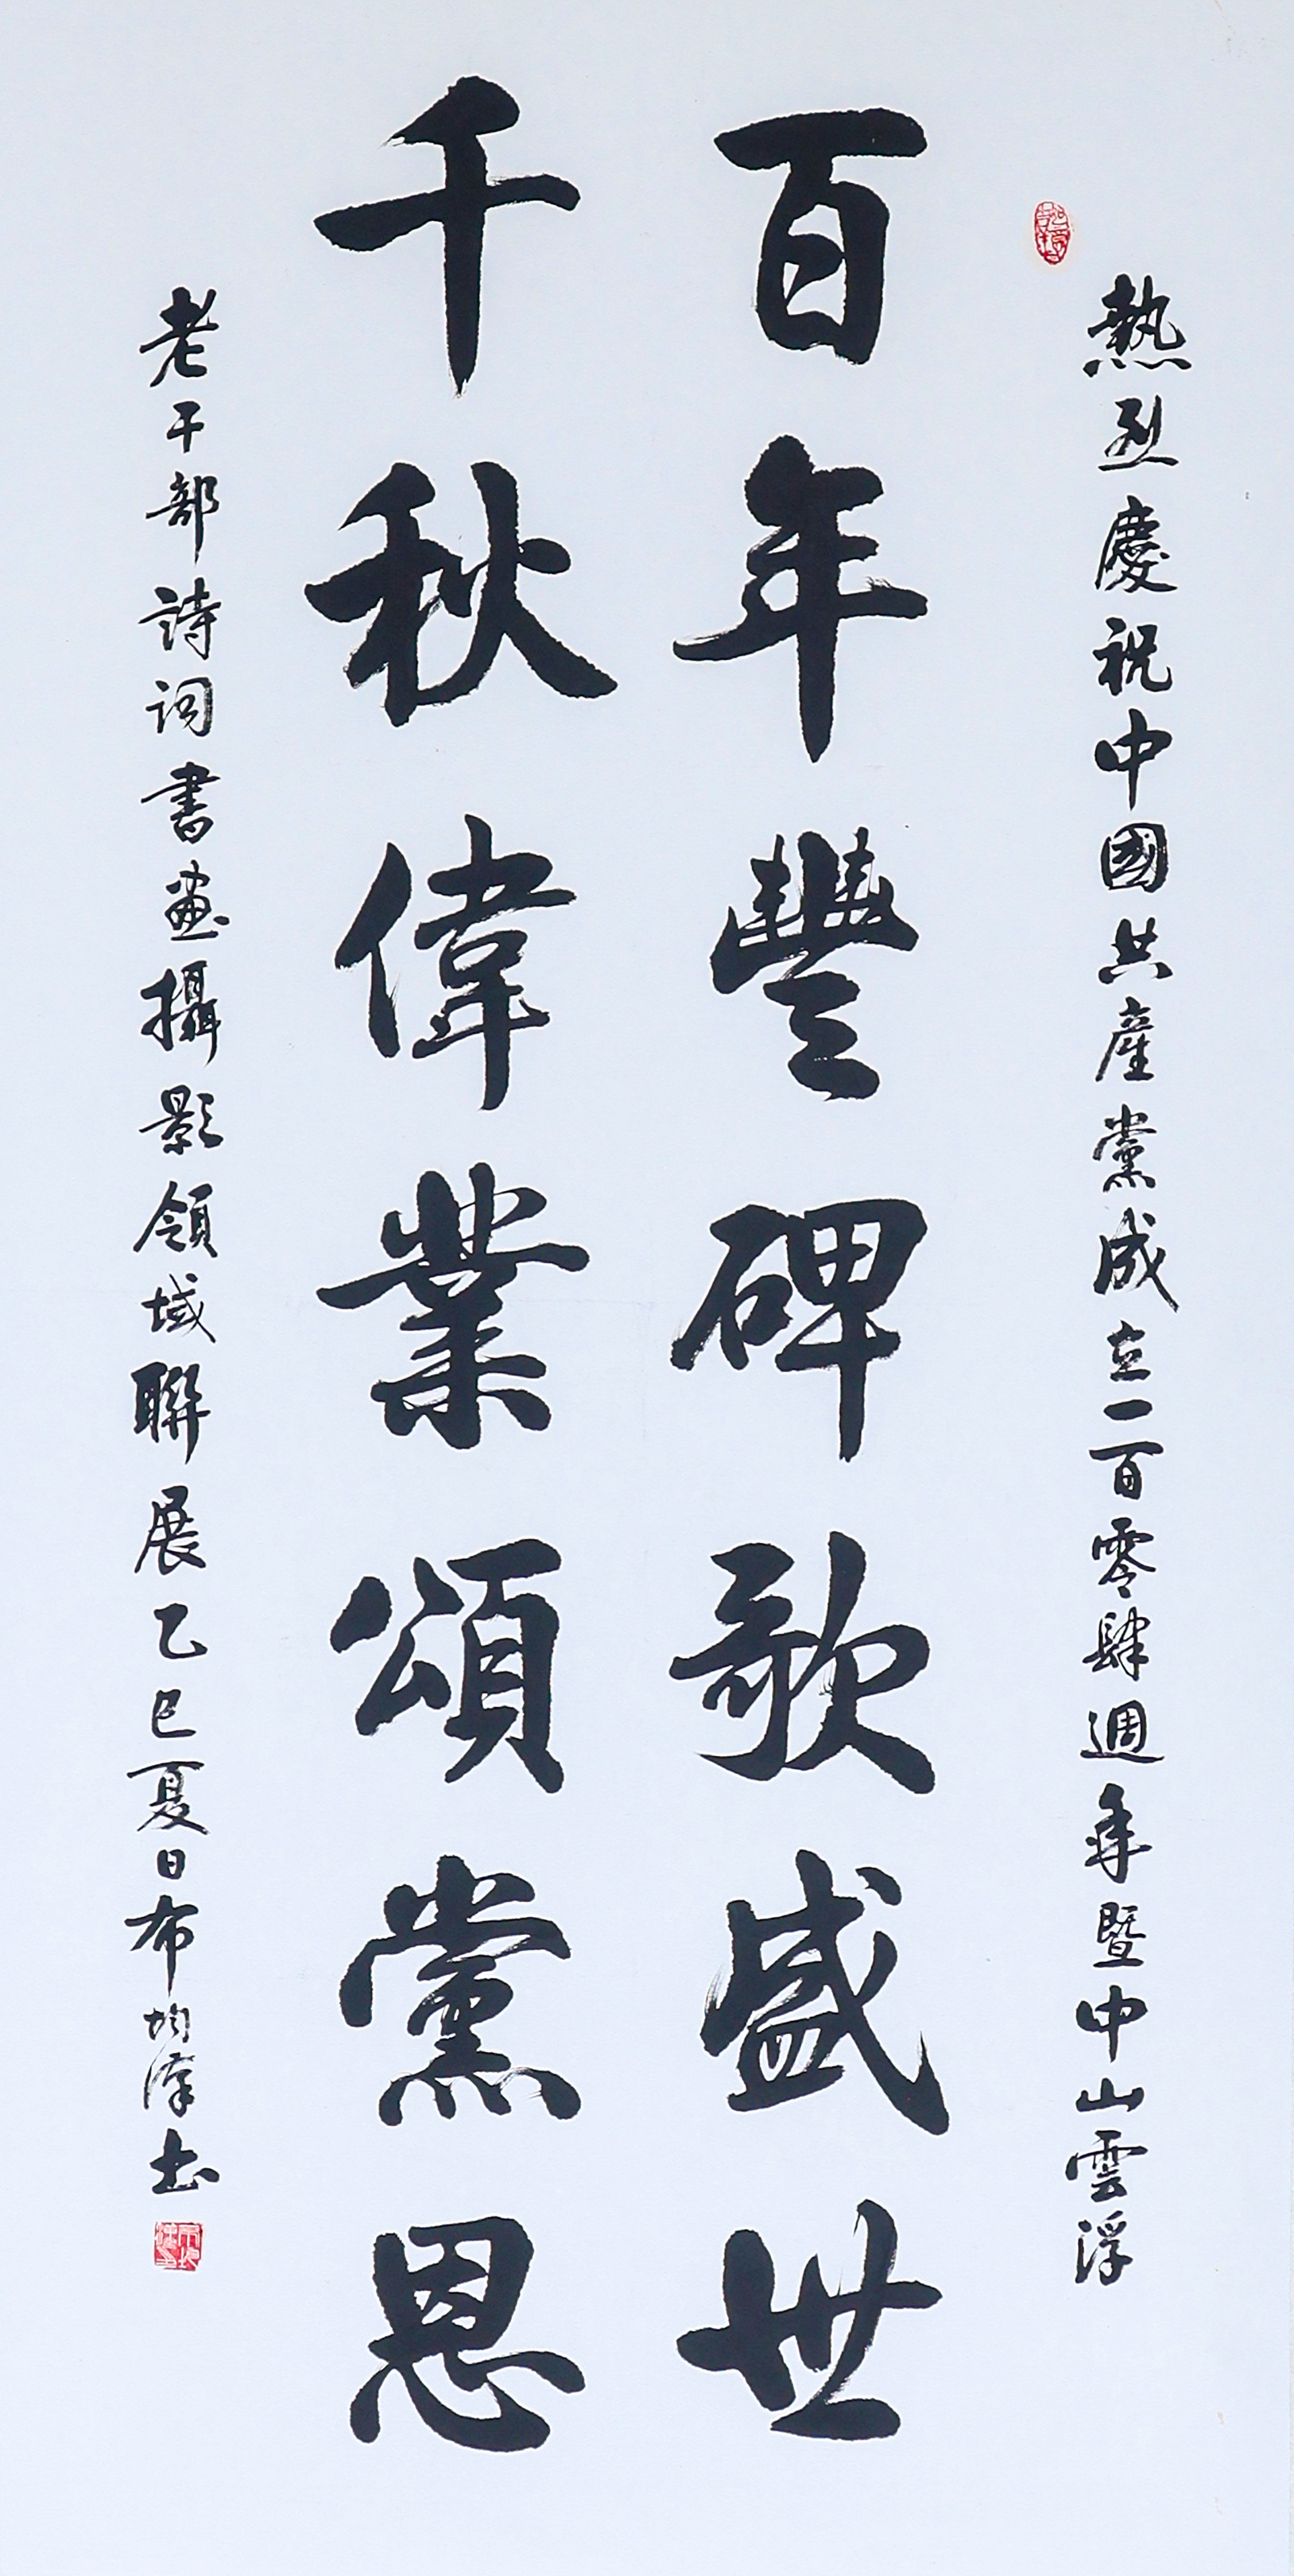 熱烈慶祝中國共產黨成立一百零肆週年暨中山雲浮
百年豐碑歌盛世
千秋偉業頌黨恩
老干部詩詞書畫攝影領域聯展乙巳夏日布均澤书